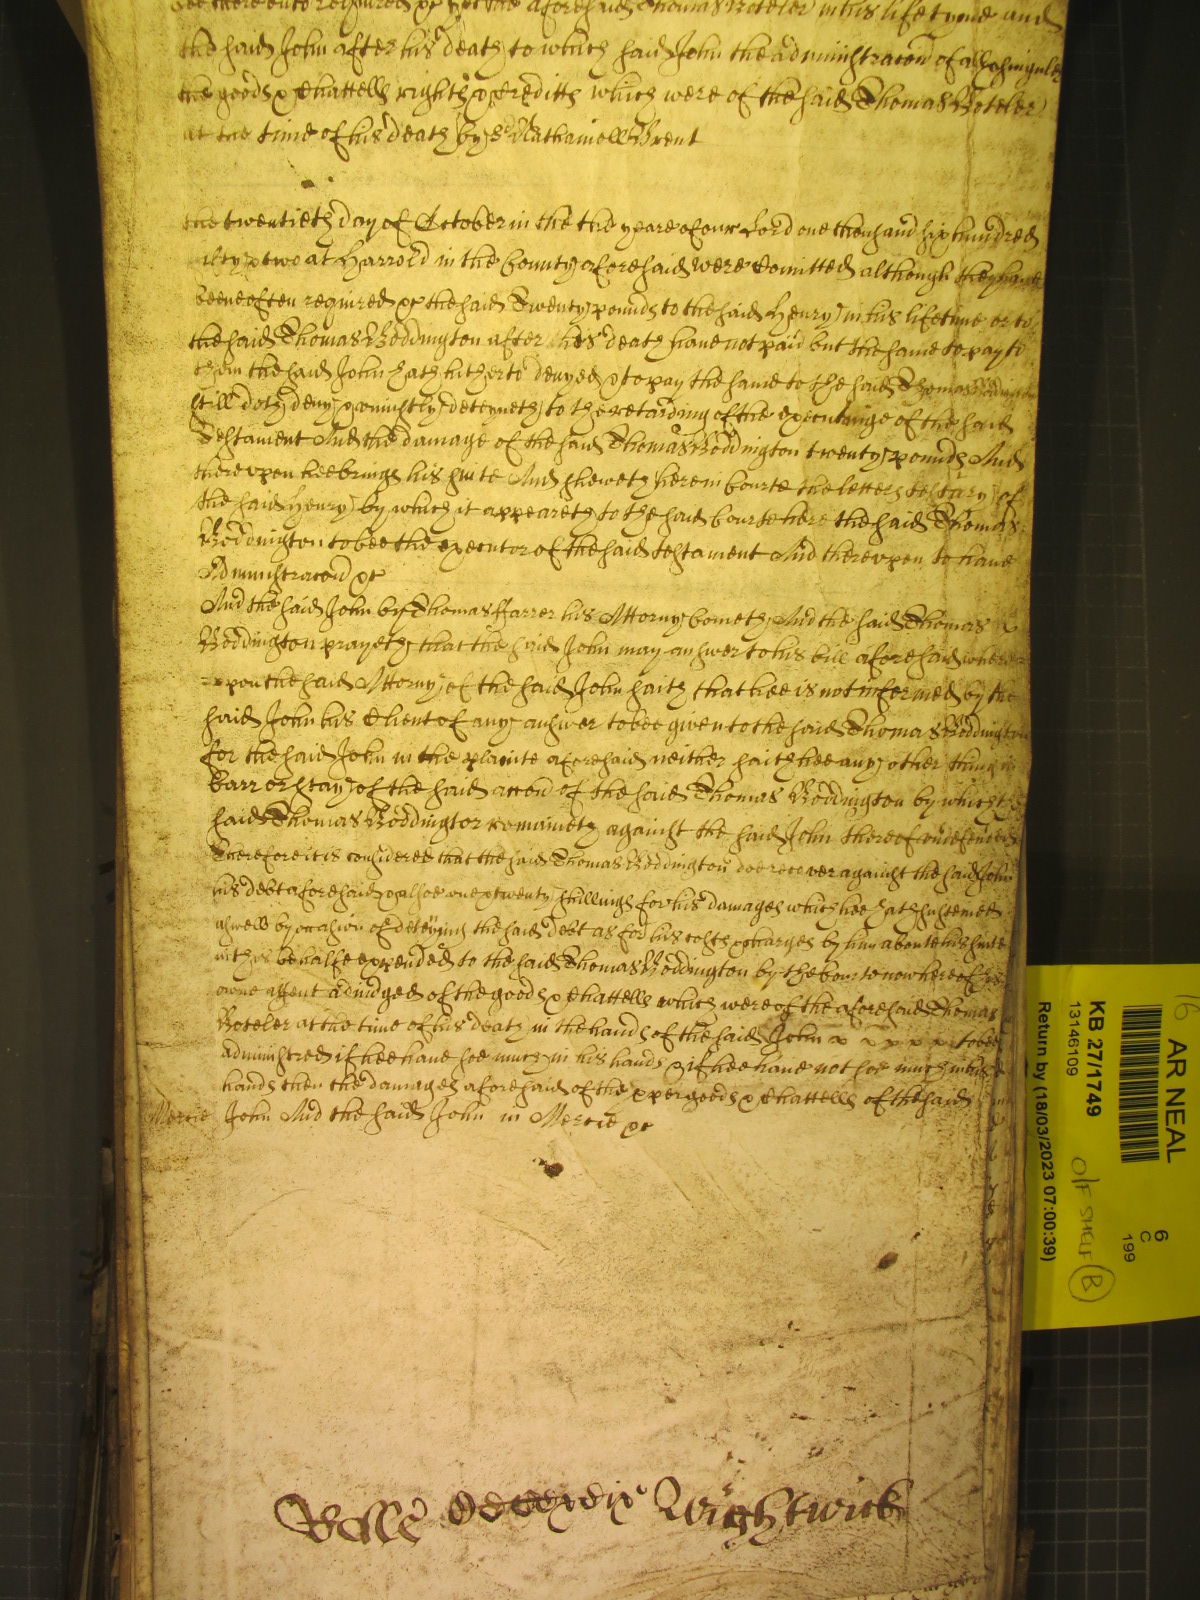 bee thereunto required &c Yet the aforesaid Thomas Boteler in his life tyme and
the said John after his death to which said John the administracon of all & singuler
the goods & Chattells rights & Creditts which were of the said Thomas Boteler
at the time of his death by Sr Nathaniell Brent
the twentieth day of October in the the yeare of our Lord one thousand six hundred
fifty & two at Harrold in the County aforesaid were Comitted although they have
beene often required &c the said Twenty pounds to the said Henry in his lifetime or to
the said Thomas Boddington after his death have not paid but the same to pay to
them the said John hath hitherto denyed & to pay the same to the said Thomas Boddington
still doth deny & uniustly deteyneth to the retarding of the execucinge of the said
Testament And the damage of the said Thomas Boddington twenty pounds And
thereupon hee brings his suite And sheweth here in Courte the letters testary of
the said Henry by which it appeareth to the said Courte here the said Thomas
Boddington to bee the executor of the said testament And thereupon to have
Administracon &c
And the said John by Thomas Farrer his Attorny Cometh And the said Thomas
Boddington prayeth that the said John may answer to his bill aforesaid where
uppon the said Attorny of the said John saith that hee is not informed by the
said John his Client of any answer to bee given to the said Thomas Boddington
for the said John in the plainte aforesaid neither saith hee any other thing in
barr or stay of the said accon of the said Thomas Boddington by which the
said Thomas Boddington remaineth against the said John thereof undefended
Therefore it is considered that the said Thomas Boddington doe recover against the said John
his debt aforesaid & alsoe one & twenty shillings for his damages which hee hath susteined
aswell by occasion of deteyning the said debt as for his costs & charges by him aboute his suite
in this behalfe expended to the said Thomas Boddington by the Courte now here of his
owne assent adiudged of the goods & Chattells which were of the aforesaid Thomas
Boteler at the time of his death in the hands of the said John to bee
administred if hee have soe much in his hands & if hee have not soe much in his
hands then the damages aforesaid of the proper goods & Chattells of the said
Mercie John And the said John in Mercie &c
Rolle Wightwick
16
AR NEAL
KB 27/1749
13146109
Return by (18/03/2023 07:00:39)
6
C
199
O/F SHELF B